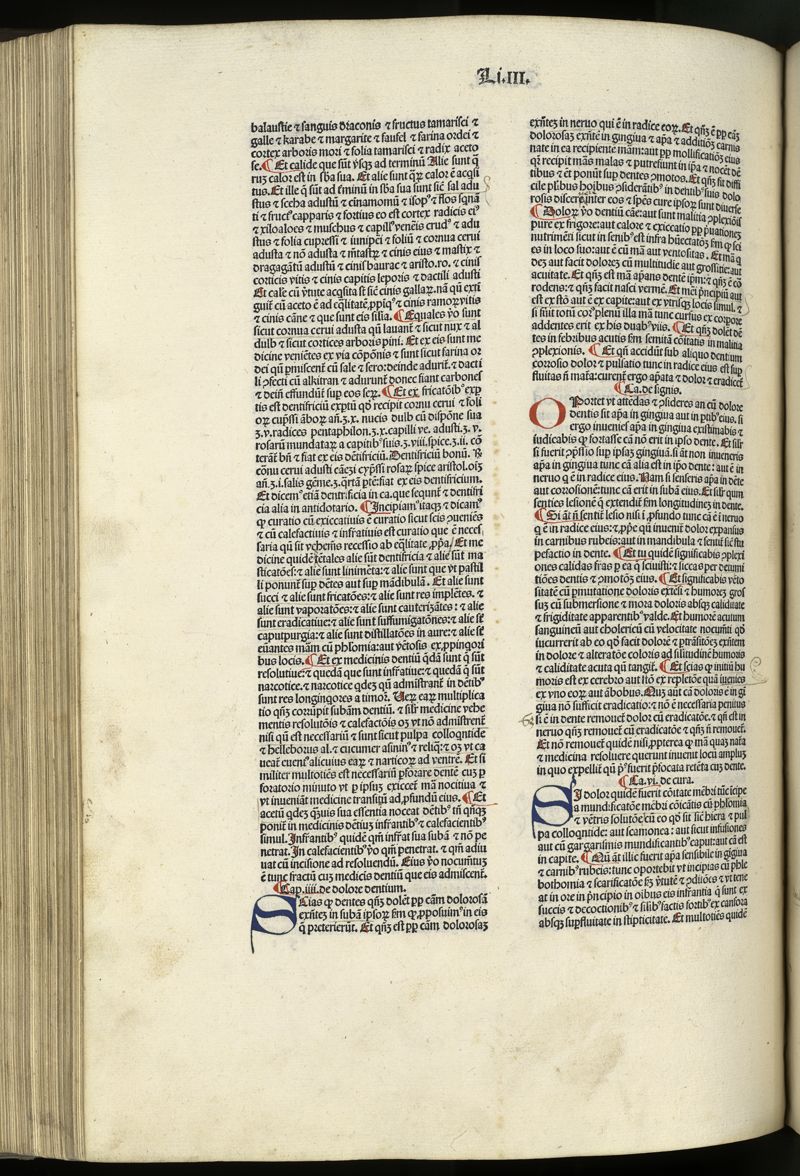 Li.III.
balaustie ⁊ sanguis draconis ⁊ fructus tamarisci ⁊
galle ⁊ karabe ⁊ margarite ⁊ faufel ⁊ farina ordei ⁊
cortex arboris mori ⁊ folia tamarisci ⁊ radix aceto
se. ¶ Et calide que sūt ad terminū Alie sunt q̄
ruꝫ calor est in sb̄a sua. Et alie sunt calor ē acq̄si
tus. Et ille q̄ sūt ad in sb̄a sua sunt sic̄ sal adu
stus ⁊ adustū ⁊ cinamomū ⁊ ⁊ flos
ti ⁊ capparis ⁊ fortius eo est cortex radicis
⁊ xiloaloes ⁊ muschus ⁊ ⁊ adu
stus ⁊ folia cupressi ⁊ iunip̄i ⁊ foliū ⁊ cornua cerui
adusta ⁊ nō adusta ⁊ ⁊ cinis eius ⁊ mastix ⁊
dragagātū adustū ⁊ cinis baurac ⁊ aristo.ro. ⁊ cinis
corticis vitis ⁊ cinis capitis leporis ⁊ dactili adusti
Et cale cū v̄tute acq̄sita sūt sic̄ cinis gallaꝝ. nā qn̄ exti
guit̄ cū aceto ē ad eq̄litatē ⁊ cinis ramoꝝ vitis
⁊ cinis cāne ⁊ que sunt eis silia. ¶ Equales v̄o sunt
sicut cornua cerui adusta qn̄ lauant̄ ⁊ sicut nux ⁊ al
dulb ⁊ sicut cortices arboris pini. Et ex eis sunt me
dicine veniētes ex via cōpōnis ⁊ sunt sicut farina or
dei qn̄ pmiscent̄ cū sale ⁊ sero: deinde adurit̄. ⁊ dacti
li ꝯfecti cū alkitran ⁊ adurunt̄ donec fiant carbones
⁊ dein̄ effundūt̄ sup eos seꝝ. ¶ Et ex fricatōib⁹ exp
tis est dentifriciū exptū qd̄ recipit cornu cerui ⁊ foli
oꝝ cup̄ssi ābor añ.ʒ.x. nucis dulb cū dispōne sua
ʒ.v. radices pentaphilon.ʒ.x. capilli ve. adusti.ʒ.v.
rosarū mundataꝝ a capitib⁹ suis.ʒ.viii. spice.ʒ.ii. cō
terāt̄ bn̄ ⁊ fiat ex eis dētifriciū. Dentifriciū bonū. ℞
cōnu cerui adusti rosaꝝ spice aristol.
añ.ʒ.i. salis gēme.ʒ. fiat ex eis dentifricium.
Et dicem⁹ etiā dentrificia in ca. que seqn̄t̄ ⁊ dentifri
cia alia in antidotario. ¶ Incipiam⁹ itaqꝫ ⁊ dicam⁹
ꝙ curatio cū exiccatiuis ē curatio sicut scis ꝯueniēs
⁊ cū calefactiuis ⁊ infrigatiuis est curatio que ē neces
saria qn̄ sit vehemēs recessio ab eq̄litate ꝓpa. Et me
dicine alie sūt dentifricia ⁊ alie sūt ma
sticatōes: ⁊ alie sunt linimēta: ⁊ alie sunt que vt pastil
li ponunt̄ sup dētes aut sup mādibulā. Et alie sunt
succi ⁊ alie sunt fricatōes: ⁊ alie sunt res implētes. ⁊
alie sunt vaporatōes: ⁊ alie sunt cauterizātes: ⁊ alie
sunt eradicatiue: ⁊ alie sunt suffumigatōnes: ⁊ alie sē
caputpurgia: ⁊ alie sunt distillatōes in aure: ⁊ alie sē
euāntes mām cū phlomia: aut vētosis ex ꝓpinqori
bus locis. ¶ Et ex medicinis dentiū q̄dā sunt q̄ sūt
resolutiue: ⁊ quedā que sunt infrigatiue: ⁊ quedā q̄ sūt
narcotice. ⁊ narcotice qn̄ admistrant̄ in dētib⁹
sunt res longinqores a timor. Veꝝ eaꝝ multiplica
tio qn̄qꝫ corrūpit subām dentiū. ⁊ silr medicine vehe
mentis resolutōis ⁊ calefactōis oꝫ vt nō admistrent̄
nisi qn̄ est necessariū ⁊ sunt sicut pulpa colloqntide
⁊ helleborus al. ⁊ cucumer asinin⁹ ⁊ reliq̄: ⁊ oꝫ vt ca
ueat̄ euens̄ alicuius eaꝝ ⁊ narticoꝝ ad ventrē. Et si
militer multotiēs est necessariū pforare dentē cuꝫ p
foratorio minuto vt p ipsuꝫ exiccet̄ mā nociua ⁊
vt inueniāt medicine transitū ad ꝓfundū eius. ¶ Et
acetū qn̄qꝫ q̄uis sua essentia noceat dētib⁹ tn̄ qn̄qꝫ
ponit̄ in medicinis dētiuꝫ infrigantib⁹ ⁊ calefacientib⁹
simul. Infrigantib⁹ quidē qm̄ infrigat sua subā ⁊ nō pe
netrat. In calefacientib⁹ v̄o qm̄ penetrat. ⁊ qm̄ adiu
uat cū incisione ad resoluendū. Eius v̄o nocumētuꝫ
ē tunc fractū cuꝫ medicis dentiū que eis admiscent̄.
¶ Cap. iiii. de dolore dentium.
Scias ꝙ dentes qn̄qꝫ dolēt pp cām dolorosā
exn̄teꝫ in subā ip̄soꝝ fm ꝙ ꝓposuim⁹ in eis
q̄ preterierūt. Et qn̄qꝫ est pp cām dolorosaꝫ
exn̄teꝫ in neruo qui ē in radice eoꝝ. Et qn̄qꝫ ē pp cāꝫ
dolorosaꝫ exn̄tē in gingiua ⁊ apā ⁊ additiōꝫ carnis
nate in ea recipiente mām: aut pp mollificatiōꝫ eius
qꝛ recipit mās malas ⁊ putrefiunt in ip̄a ⁊ nocēt dē
tibus ⁊ ēt ponūt sup dentes ꝯmotos. Et qn̄qꝫ sit diffi
cile plibus hoībus ꝯsiderātib⁹ in dentib⁹ suis dolo
rosis discernēt̄ inter eos ⁊ sp̄es cure ip̄soꝝ sunt diuerse
¶ Doloꝝ v̄o dentiū cāe: aut sunt malitia ꝯplexiōis
pure ex frigore: aut calore ⁊ exiccatio pp p̄uationeꝫ
nutrimēti sicut in senib⁹ est infra hūectatōꝫ fm ꝙ sci
es in loco suo: aut ē cū mā aut ventositas. Et mā q̄
deꝫ aut facit doloreꝫ cū multitudie aut grossitie: aut
acuitate. Et qn̄qꝫ est mā apans dentē ip̄m: ⁊ qn̄qꝫ ē cō
rodens: ⁊ qn̄qꝫ facit nasci vermē. Et mēi p̄ncipiū aut
est ex stō aut ē ex capite: aut ex vtrisqꝫ locis simul. ⁊
si sūit totū corꝰ plenū illa mā tunc cursus ex corpore
addentes erit ex his duab⁹ viis. ¶ Et qn̄qꝫ dolēt dē
tes in febribus acutis fm semitā cōitatis in malitia
ꝯplexionis. ¶ Et qn̄ accidūt sub aliquo dentium
corrosio dolor ⁊ pulsatio tunc in radice eius est sup
fluitas n̄ mat̄a: curent̄ ergo ap̄ata ⁊ dolor ⁊ eradicet̄
¶ Ca. de signis.
Oportet vt attēdas ⁊ ꝯsideres an cū dolore
dentis sit ap̄a in gingiua aut in ptib⁹ eius. si
ergo inuenies ap̄a in gingiua existimabis ⁊
iudicabis ꝙ fortasse cā nō erit in ip̄so dente. Et silr
si fuerit p̄ssio sup ip̄saꝫ gingiuā. si āt non inueneris
ap̄a in gingiua tunc cā alia est in ip̄o dente: aut ē in
neruo q̄ ē in radice eius. Nam si senseris ap̄a in dēte
aut corrosionē: tunc cā erit in subā eius. Et silr qum
senties lesionē q̄ extendit̄ fm longitudineꝫ in dente.
¶ Si āt n̄ sentit̄ lesio nisi ī ꝓfundo tunc cā ē ī neruo
q̄ ē in radice eius: ⁊ ꝓprie qn̄ inuenit̄ dolor expansus
in carnibus rubeis: aut in mandibula ⁊ sentit̄ sic̄ stu
pefactio in dente. ¶ Et tu quidē significabis ꝯplexi
ones calidas frās p ea q̄ sciuisti: ⁊ siccas per
tiōes dentis ⁊ ꝯmotōꝫ eius. ¶ Et significabis vēto
sitatē cū pmutatione doloris extēsi ⁊ humoreꝫ gros
suꝫ cū submersione ⁊ mora doloris absqꝫ caliditate
⁊ frigiditate apparentib⁹ valde. Et humorē acutum
sanguineū aut cholericū cū velocitate nocumēti qd̄
iucurrerit ab eo qd̄ facit dolorē ⁊ exn̄tem
in dolore ⁊ alteratōe coloris ad silitudinē humoris
⁊ caliditate acuta qn̄ tangit̄. ¶ Et scias ꝙ initiū hu
moris est ex cerebro aut stō ex repletōe quā iuenies
ex vno eoꝝ aut ābobus. Nuꝫ aut cā doloris ē in gi
giua nō sufficit eradicatio: ⁊ nō ē necessaria penitus
si ē in dente remouet̄ dolor cū eradicatōe. ⁊ qn̄ est in
neruo qn̄qꝫ remouet̄ cū eradicatōe ⁊ qn̄qꝫ n̄ remouet̄.
Et nō remouet̄ quidē nisi ꝓpterea ꝙ mā quaꝫ nat̄a
⁊ medicina resoluere querunt inuenit locū amplum
in quo expellit̄ qn̄ p⁹ fuerit p̄focata retēta cuꝫ dente.
¶ Ca. vi. de cura.
Si dolor quidē fuerit cōitate mēbri tūc icipe
a mundificatōe mēbri cōicātis cū phlomia
⁊ vētris solutōe cū eo qd̄ sit sic̄ hiera ⁊ pul
pa colloqntide: aut scamonea: aut sicut infusiones
aut cū gargarismis mundificantib⁹ caput: aut cā est
in capite. ¶ Nū āt illic fuerit ap̄a sensibile in gigiua
⁊ carnib⁹ rubeis: tunc oportebit vt incipias cū phle
bothomia ⁊ scarificatōe fm v̄tutē ⁊ ꝯditiōes ⁊ vt tene
at in ore in p̄ncipio in oībus eis infrigantia q̄ sunt ex
succis ⁊ decoctionib⁹ ⁊ silib⁹ factis fortib⁹ ex canfora
absqꝫ supfluitate in stipticitate. Et multotiēs quidē